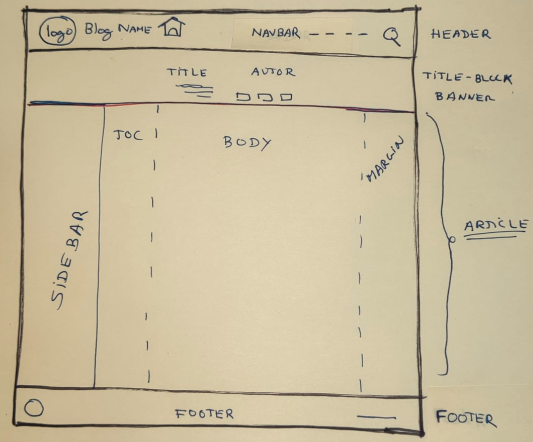 logo Blog NAME NAVBAR HEADER
TITLE AUTOR TITLE-BLOCK
BANNER
TOC BODY MARGIN
SIDEBAR ARTICLE
FOOTER FOOTER